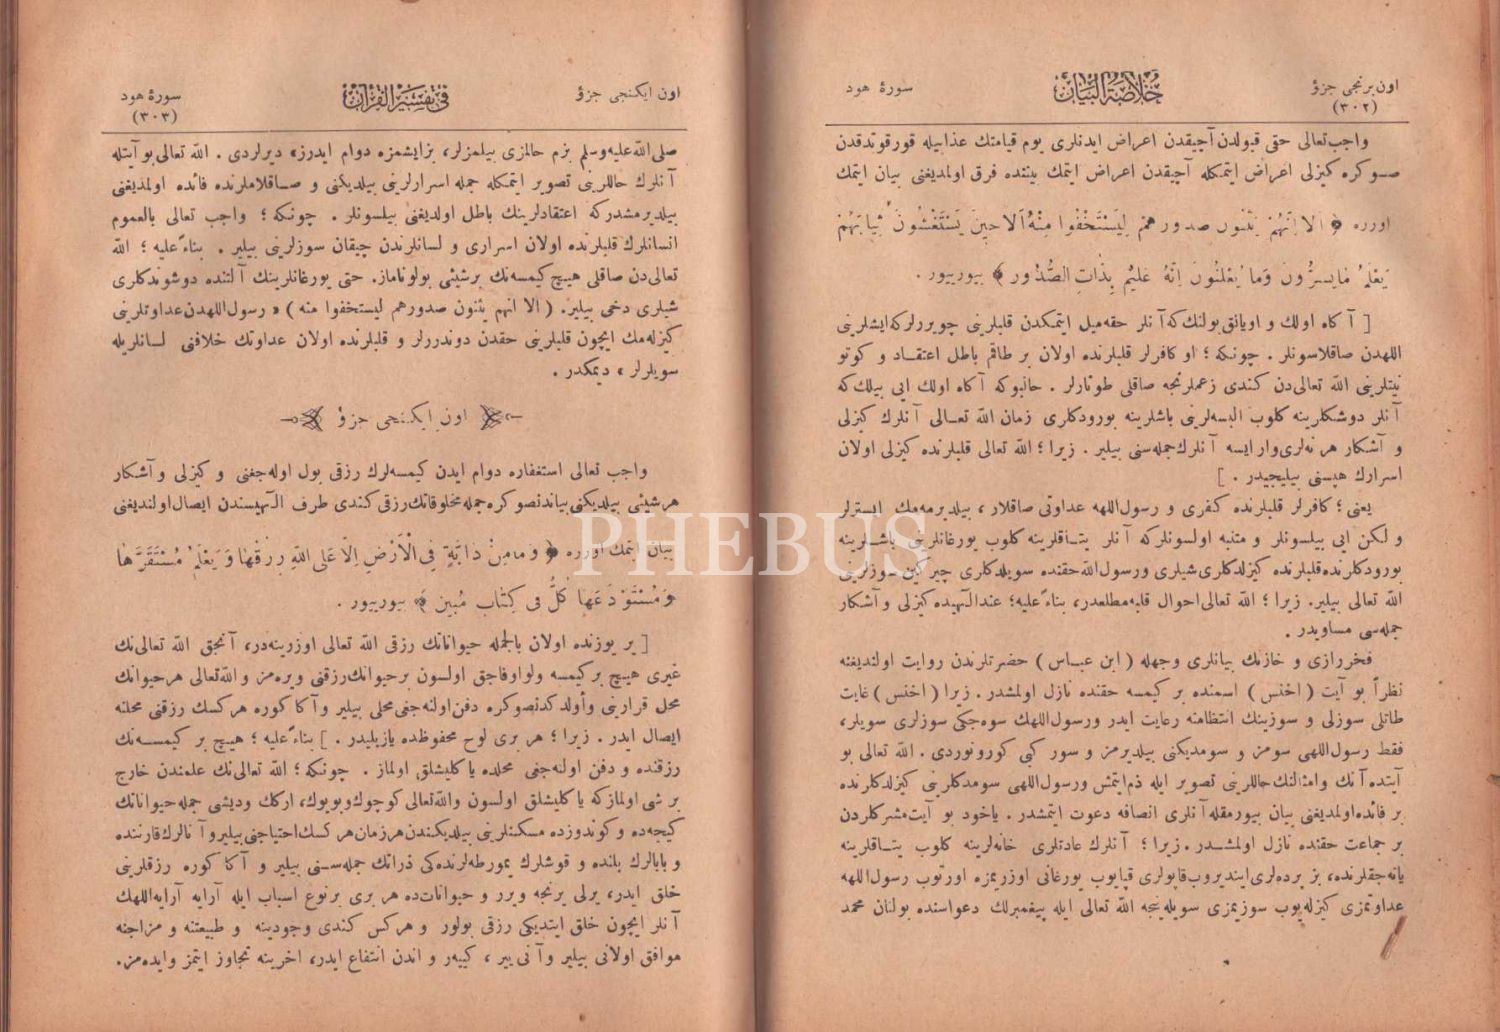 اون برنجی جزؤ
خلاصة البيان
سورۀ هود
(٣٠٢)
واجب‌تعالی حتی قبولدن آچیقدن اعراض ایدنلری یوم قیامتك عذابیله قورقوتدقدن
صوکره کیزلی اعراض ایتمکله آچیقدن اعراض ایتمك بیننده فرق اولمدیغنی بیان ایتمك
اوزره ﴿ اَلا اِنَّهُمْ يَثْنُونَ صدورهم لِيَسْتَخْفُوا مِنْهُ اَلَا حِينَ يَسْتَغْشُونَ ثِيَابَهُمْ
يَعْلَمُ مَايُسِرُّونَ وَمَا يُعْلِنُونَ اِنَّهُ عَلِيمٌ بِذَاتِ الصُّدُورِ ﴾ بیورییور .
[ آکاه اولك و اویانق بولنك‌که آنلر حقه‌میل ایتمکدن قلبلرینی چویررلرکه‌ایشلرینی
اللهدن صاقلاسونلر . چونکه ؛ او کافرلر قلبلرنده اولان بر طاقم باطل اعتقاد و کوتو
نیتلرینی الله تعالی‌دن کندی زعملرنجه صاقلی طوتارلر . حالبوکه آکاه اولك ایی بیلك‌که
آنلر دوشکلرینه کلوب البسه‌لرینی باشلرینه بورودکلری زمان الله تعالی آنلرك کیزلی
و آشکار هر نه‌لری‌وار ایسه آنلرك‌جمله‌سنی بیلیر . زیرا ؛ الله تعالی قلبلرنده کیزلی اولان
اسرارك هپسنی بیلیجیدر . ]
یعنی ؛ کافرلر قلبلرنده کفری و رسول‌اللهه عداوتی صاقلار ، بیلدیرمه‌مك ایسترلر
و لکن ایی بیلسونلر و متنبه اولسونلرکه آنلر یتاقلرینه کلوب یورغانلرینی باشلرینه
بورودکلرنده‌قلبلرنده کیزلدکلری‌شیلری ورسول‌الله‌حقنده سویلدکلری چیرکین‌سوزلرینی
الله تعالی بیلیر. زیرا ؛ الله تعالی‌احوال قلبه‌مطلعدر، بناءًعلیه؛ عندالهیده‌کیزلی وآشکار
جمله‌سی مساویدر .
فخررازی و خازنك بیانلری وجهله (ابن عباس) حضرتلرندن روایت اولندیغنه
نظراً بو آیت (اخنس) اسمنده بر کیمسه حقنده نازل اولمشدر. زیرا (اخنس) غایت
طاتلی سوزلی و سوزینك انتظامنه رعایت ایدر ورسول‌اللهك سوه‌جکی سوزلری سویلر،
فقط رسول‌اللهی سومز و سومدیکنی بیلدیرمز و سور کبی کورونوردی . الله تعالی بو
آیتده آنك وامثالنك‌حاللرینی تصویر ایله ذم‌ایتمش ورسول‌اللهی سومدکلرینی کیزلدکلرنده
بر فائده‌اولمدیغنی بیان بیورمقله‌آنلری انصافه دعوت ایتمشدر. یاخود بو آیت‌مشرکلردن
بر جماعت حقنده نازل اولمشدر. زیرا ؛ آنلرك عادتلری خانه‌لرینه کلوب یتاقلرینه
یاته‌جقلرنده، بز پرده‌لری‌ایندیروب‌قاپولری قپایوب یورغانی اوزریمزه اورتوب رسول‌اللهه
عداوتمزی کیزله‌یوب سوزیمزی سویله‌ینجه الله تعالی ایله پیغمبرلك دعواسنده بولنان محمد
اون ایکنجی جزؤ
فی تفسیر القرآن
سورۀ هود
(٣٠٣)
صلی‌الله‌علیه‌وسلم بزم حالمزی بیلمزلر، بزایشمزه دوام ایدرز» دیرلردی . الله تعالی‌بوآیتله
آنلرك حاللرینی تصویر ایتمکله جمله اسرارلرینی بیلدیکنی و صاقلاملرنده فائده اولمدیغنی
بیلدیرمشدرکه اعتقادلرینك باطل اولدیغنی بیلسونلر . چونکه ؛ واجب تعالی بالعموم
انسانلرك قلبلرنده اولان اسراری و لسانلرندن چیقان سوزلرینی بیلیر . بناءًعلیه ؛ الله
تعالی‌دن صاقلی هیچ کیمسه‌نك برشیئی بولوناماز. حتی یورغانلرینك آلتنده دوشوندکلری
شیلری دخی بیلیر. (الا انهم یثنون صدورهم لیستخفوا منه) « رسول‌اللهدن‌عداوتلرینی
کیزله‌مك ایچون قلبلرینی حقدن دوندررلر و قلبلرنده اولان عداوتك خلافنی لسانلریله
سویلرلر » دیمکدر .
اون ایکنجی جزؤ
واجب تعالی استغفاره دوام ایدن کیمسه‌لرك رزقی بول اوله‌جغنی و کیزلی وآشکار
هرشیئی بیلدیکنی‌بیاندنصوکره‌جمله‌مخلوقاتك‌رزقی‌کندی طرف الهیسندن ایصال‌اولندیغنی
بیان ایتمك اوزره ﴿ وَمَامِنْ دَابَّةٍ فِي الْاَرْضِ اِلَّا عَلَى اللّٰهِ رِزْقُهَا وَيَعْلَمُ مُسْتَقَرَّهَا
وَمُسْتَوْدَعَهَا كُلٌّ فِي كِتَابٍ مُبِينٍ ﴾ بیورییور .
[ یر یوزنده اولان بالجمله حیواناتك رزقی الله تعالی اوزرینه‌در، آنجق الله تعالی‌نك
غیری هیچ برکیمسه ولواوفاجق اولسون برحیوانك‌رزقنی ویره‌مز و الله‌تعالی هرحیوانك
محل قرارینی وأولدکدنصوکره دفن‌اولنه‌جغی‌محلی بیلیر وآکا کوره هرکسك رزقنی محلنه
ایصال ایدر . زیرا ؛ هر بری لوح محفوظده یازیلیدر . ] بناءًعلیه ؛ هیچ بر کیمسه‌نك
رزقنده و دفن اولنه‌جغی محلده یاکلیشلق اولماز . چونکه ؛ الله تعالی‌نك علمندن خارج
بر شی اولمازکه یاکلیشلق اولسون والله‌تعالی کوچوك‌وبویوك، ارکك ودیشی جمله‌حیواناتك
کیجه‌ده و کوندوزده مسکنلرینی بیلدیکندن‌هرزمان‌هر کسك‌احتیاجنی‌بیلیروآ نالرك‌قارننده
و بابالرك بلنده و قوشلرك یمورطه‌لرنده‌کی ذراتك جمله‌سنی بیلیر و آکا کوره رزقلرینی
خلق ایدر، یرلی یرنجه ویرر و حیوانات‌ده هر بری برنوع اسباب ایله آرایه آرایه‌اللهك
آنلر ایچون خلق ایتدیکی رزقی بولور و هرکس کندی وجودینه و طبیعتنه و مزاجنه
موافق اولانی بیلیر وآنی ییر ، کییه‌ر و اندن انتفاع ایدر، اخرینه تجاوز ایتمز وایده‌مز.
PHEBUS